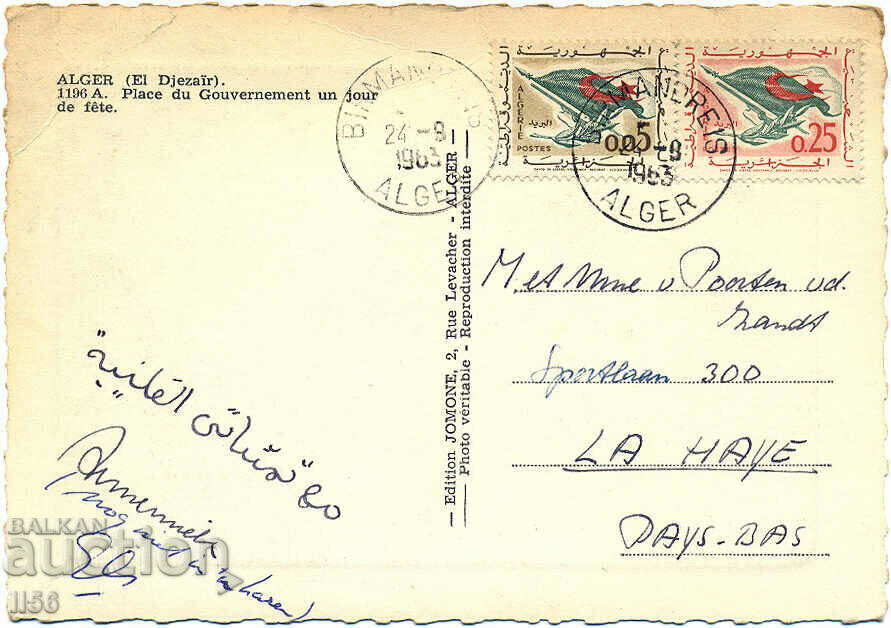 ALGER (El Djezaïr).
1196 A. Place du Gouvernement un jour
de fête.
BIRMANDREIS
24-8
1963
ALGER
ALGERIE
البريد
POSTES
0,05
الجمهورية
الجزائرية
MANDREIS
-8
1963
ALGER
الجمهورية
الجزائرية
البريد
0,25
— Edition JOMONE, 2, Rue Levacher - ALGER —
— Photo véritable - Reproduction interdite —
M. et Mme v Poorten vd.
Zandt
Sportlaan 300
LA HAYE
PAYS-BAS
مع تمنياتي القلبية
BALKAN
auction
1156